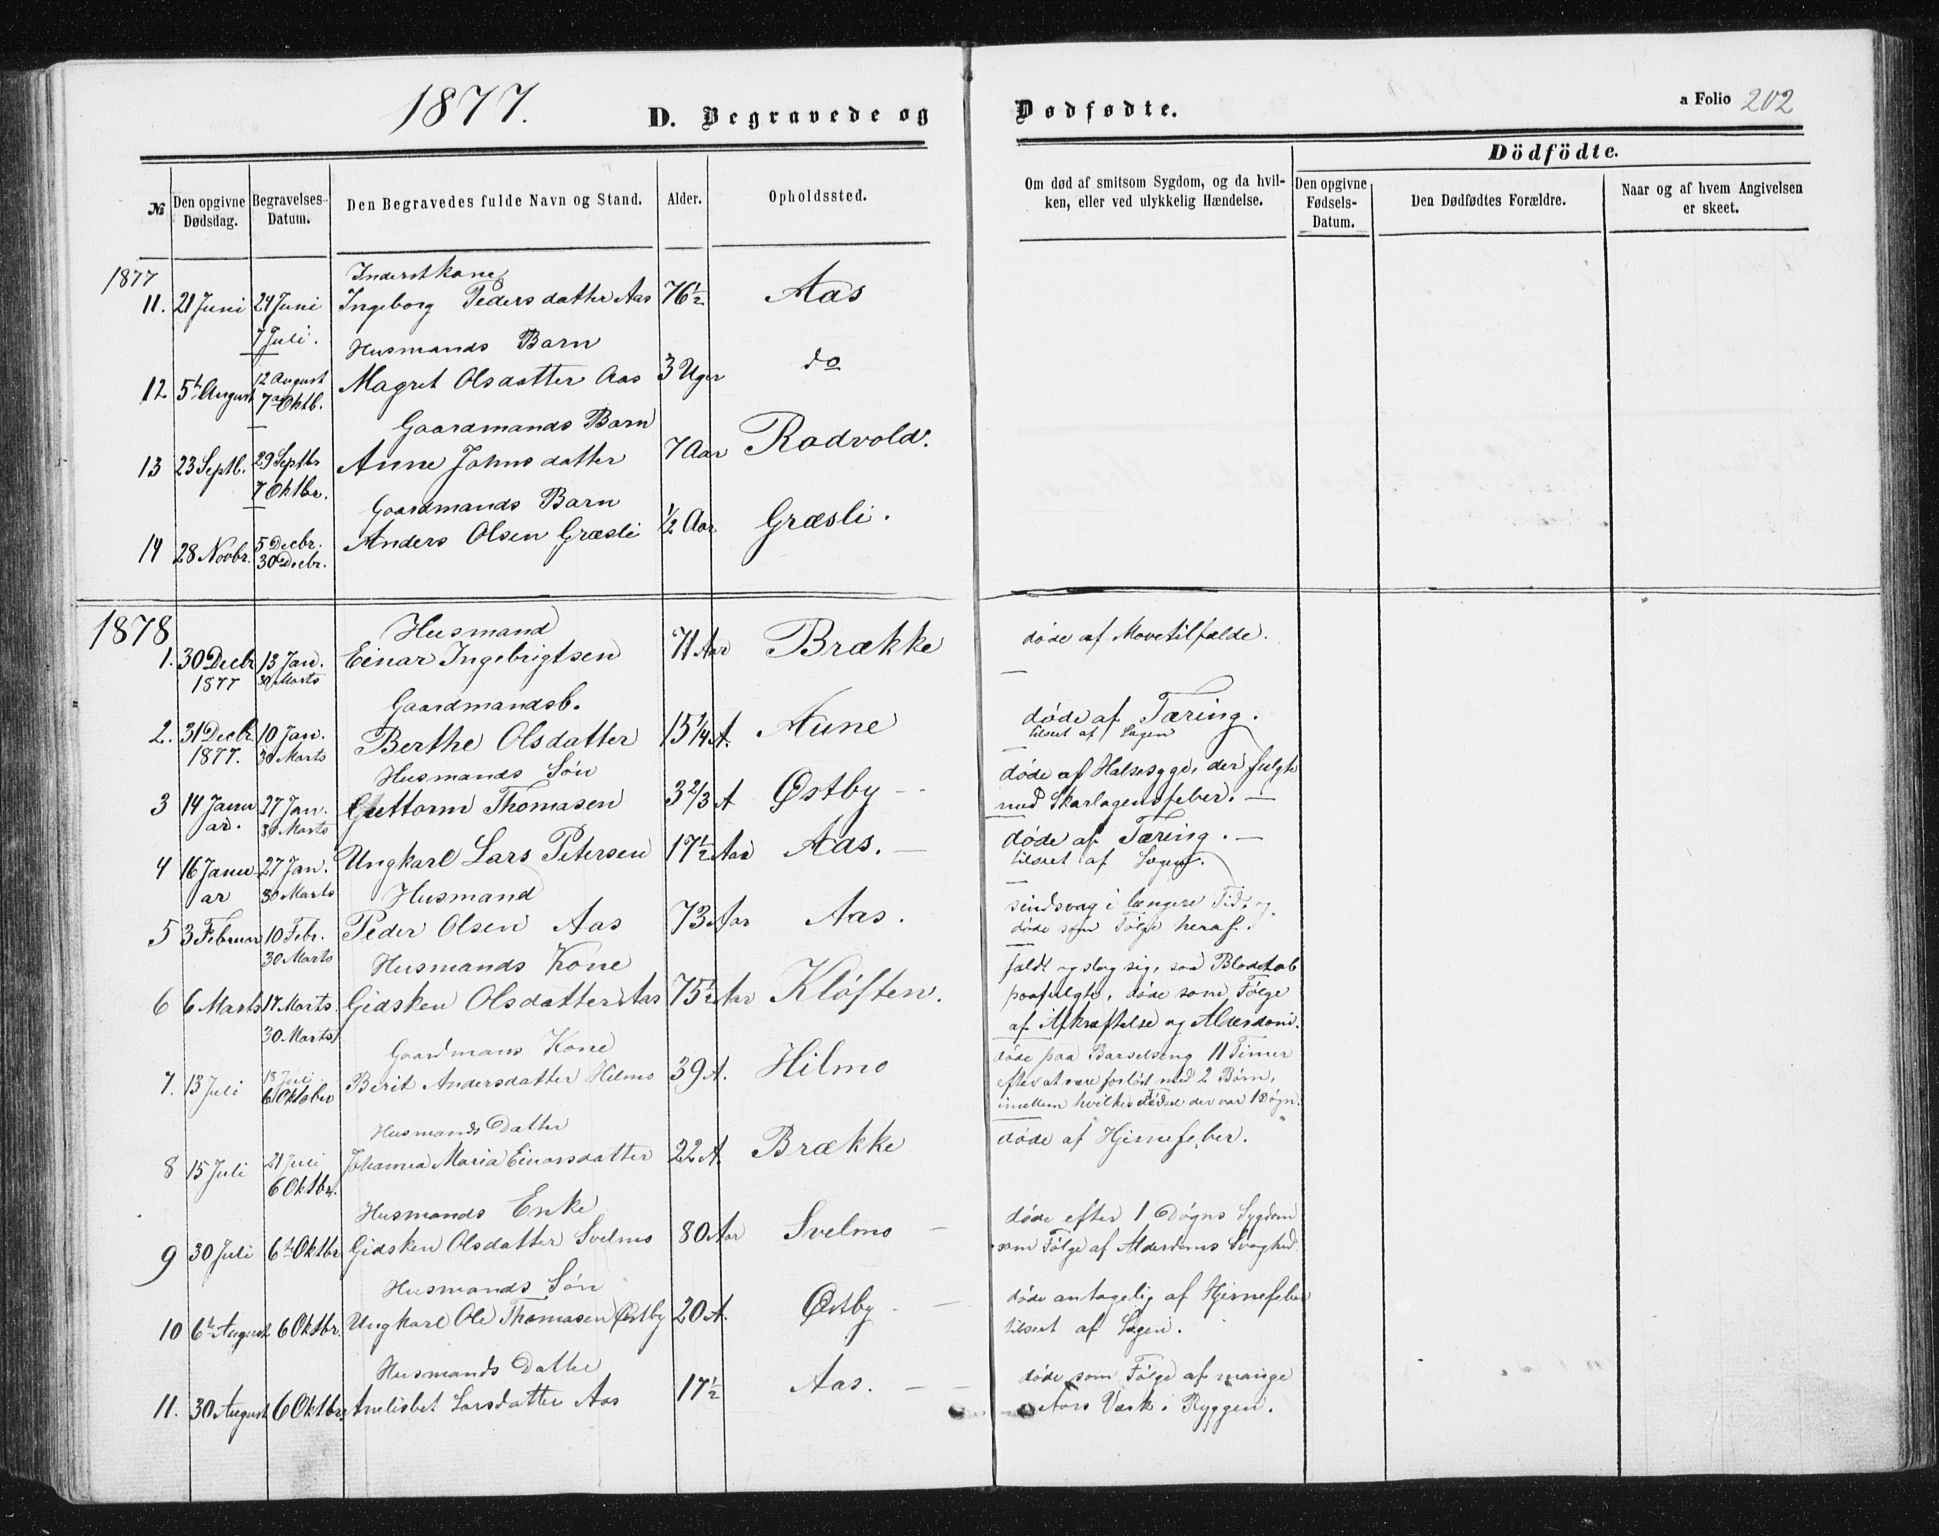 1877. D. Begravede og Dødfødte. a Folio 202
Dödfödte.
№
Den opgivne Dødsdag.
Begravelses-Datum.
Den Begravedes fulde Navn og Stand.
Alder.
Opholdssted.
Om død af smitsom Sygdom, og da hvil-
ken, eller ved ulykkelig Hændelse.
Den opgivne Fødsels-Datum.
Den Dødfødtes Forældre.
Naar og af hvem Angivelsen
er skeet.
1877
Inderstkone
11. 21 Juni 24 Juni Ingeborg Pedersdatter Aas 76½ Aas
7 Juli.
Husmands Barn
12 5te August 12 August Magret Olsdatter Aas 3 Uger do
7 Oktb.
Gaardmands Barn
13 23 Septb. 29 Septbr Anne Johnsdatter 7 Aar Rodvold.
7 Oktbr.
Gaardmands Barn
14 28 Novbr. 5 Decbr. Anders Olsen Græsli ½ Aar Græsli.
30 Decbr.
1878
Husmand
1. 30 Decbr 13 Jan. Einar Ingebrigtsen 71 Aar Brække døde af Mavetilfælde.
1877 30 Marts
Gaardmandsb.
2. 31 Decbr 10 Jan. Berthe Olsdatter 15¼ A. Aune døde af Tæring.
1877. 30 Marts tilseet af Lægen
Husmands Søn
3 14 Janu 27 Jan. Guttorm Thomasen 3⅔ A Østby - - døde af Halssyge, der fulgte
ar. 30 Marts med Skarlagensfeber. —
4 16 Janu 27 Jan. Ungkarl Lars Petersen 17½ Aar Aas. — døde af Tæring. —
ar 30 Marts tilseet af Lægen.
Husmand
5 3 Februar 10 Febr. Peder Olsen Aas 73 Aar Aas. sindsvag i længere Tid, og
30 Marts døde som Følge heraf.
Husmands Kone
6 6 Marts 17 Marts Gidsken Olsdatter Aas 75½ Aar Kløften. faldt og slog sig, saa Blodtab
30 Marts paafulgte, døde som Følge
af Afkræftelse og Alderdom.
Gaardmans Kone
7. 13 Juli 13 Juli Berit Andersdatter Hilmo 39 A. Hilmo døde paa Barselseng 11 Timer
6 Oktober efter at være forløst med 2 Børn,
imellem hvilkes Fødsel der var 1 Døgn.
Husmands Datter
8 15 Juli 21 Juli Johanna Maria Einarsdatter 22 A. Brække døde af Hjernefeber.
6 Oktbr.
Husmands Enke
9 30 Juli 6te Oktbr Gidsken Olsdatter Svelmo 80 Aar Svelmo — døde efter 1 Døgns Sygdom
som Følge af Alderdoms Svaghed
Husmands Søn
10 6te August 6 Oktbr. Ungkarl Ole Thomasen Østby 20 A. Østby - — døde antagelig af Hjernefeber
tilseet af Lægen.
Husmands Datter
11. 30 August 6 Oktbr Anelisbet Larsdatter Aas 17½ Aas. — — døde som Følge af mange
Aars Værk i Ryggen.